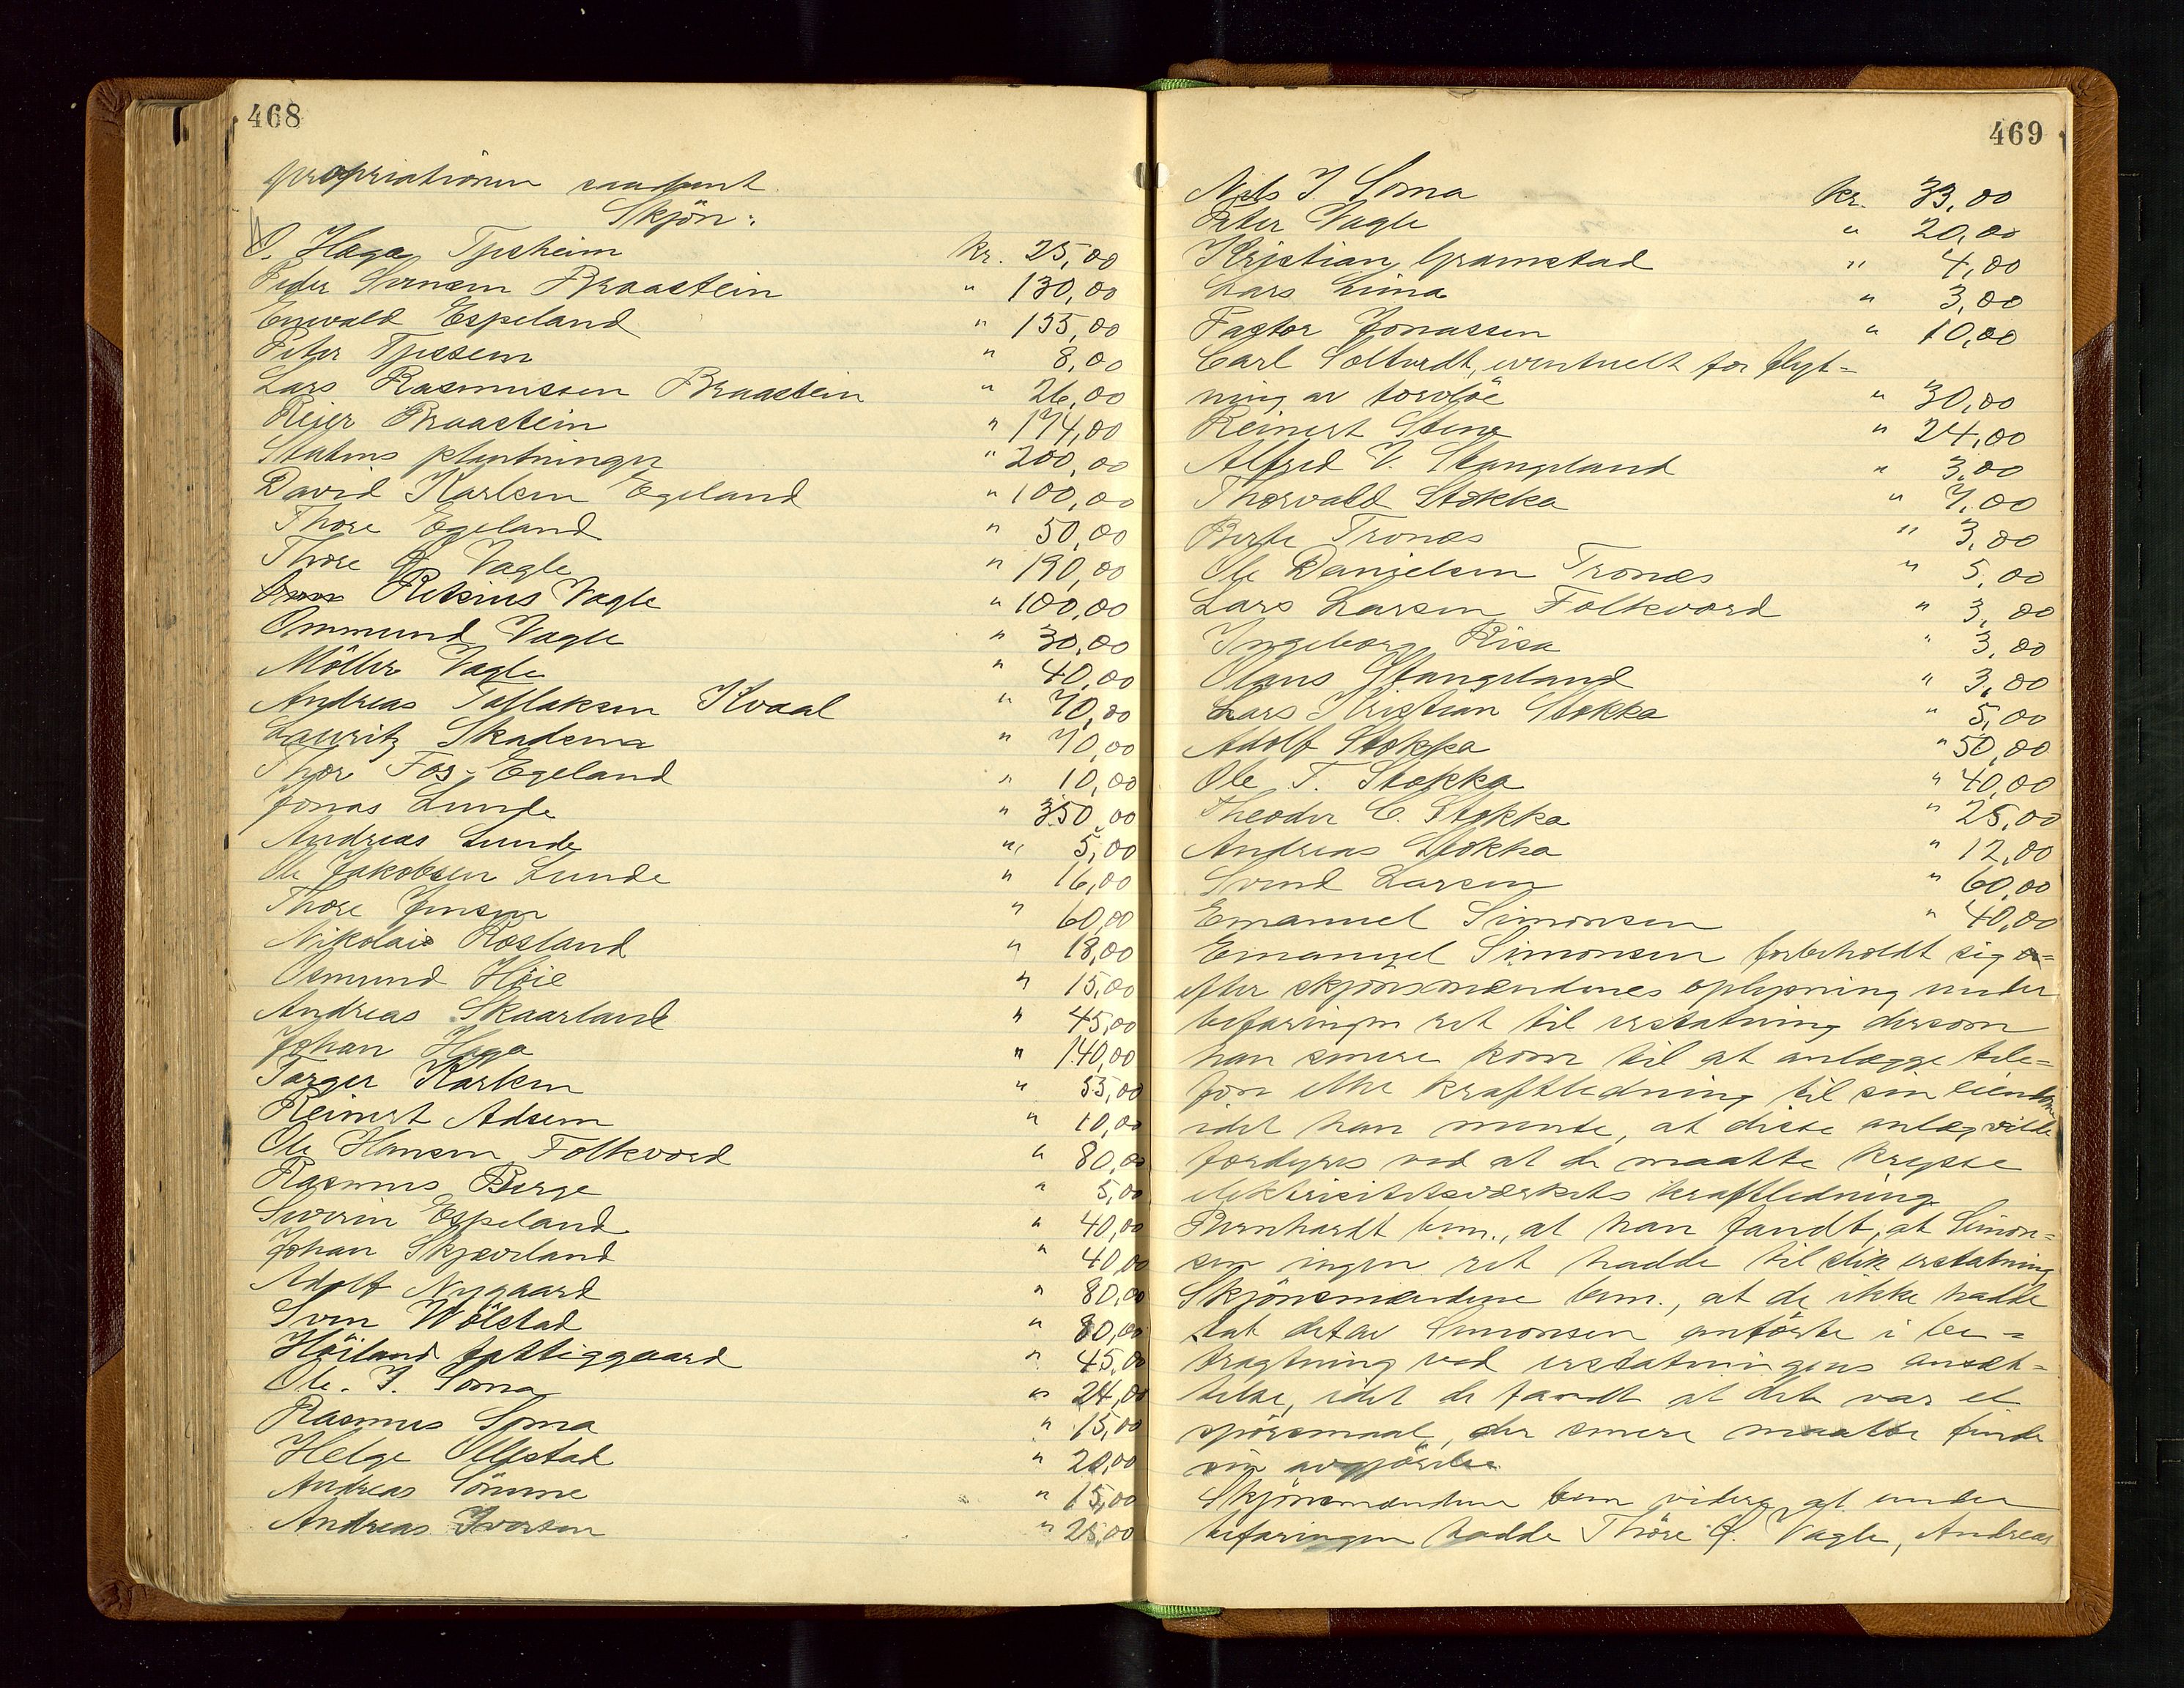 468
propriationen saadant
Skjön:
O. Haga Tjesheim kr. 25,00
Peder Svensen Braastein " 130,00
Enevald Espeland " 155,00
Peter Tjessem " 8,00
Lars Rasmussen Braastein " 26,00
Reier Braastein " 174,00
Statens plantninger " 200,00
David Karlsen Egeland " 100,00
Thore Egeland " 50,00
Thore J. Vagle " 190,00
Retsius Vagle " 100,00
Ommund Vagle " 30,00
Möller Vagle " 40,00
Andreas Tollaksen Kvaal " 70,00
Lauritz Skadsem " 70,00
Thore Fos-Egeland " 10,00
Jonas Lunde " 350,00
Andreas Lunde " 5,00
Ole Jakobsen Lunde " 16,00
Thore Jensen " 60,00
Nikolai Rosland " 18,00
Osmund Höie " 15,00
Andreas Skaarland " 45,00
Johan Haga " 140,00
Torger Karlsen " 55,00
Reinert Adsem " 10,00
Ole Hansen Folkvord " 80,00
Rasmus Berge " 5,00
Severin Espeland " 40,00
Johan Skjæveland " 40,00
Adolf Nygaard " 80,00
Sven Wölstad " 80,00
Höiland fattiggaard " 45,00
Ole. I. Soma " 24,00
Rasmus Soma " 15,00
Helge Ollestad " 20,00
Andreas Sömme " 15,00
Andreas Iversen " 25,00
469
Nils I Soma kr. 33,00
Peter Vagle " 20,00
Kristian Gramstad " 4,00
Lars Lima " 3,00
Fagtor Jonassen " 10,00
Carl Soltvedt, eventuelt for flyt=
ning av torvlöe " 30,00
Reinert Stene " 24,00
Alfred V. Stangeland " 3,00
Thorvald Stokka " 7,00
Berte Tronæs " 3,00
Ole Danielsen Tronæs " 5,00
Lars Larsen Folkvord " 3,00
Ingeborg Risa " 3,00
Olaus Stangeland " 3,00
Lars Kristian Stokka " 5,00
Adolf Stokka " 50,00
Ole T. Stokka " 40,00
Theodor C. Stokka " 25,00
Andreas Stokka " 12,00
Svend Larsen " 60,00
Emanuel Simonsen " 40,00
Emanuel Simonsen forbeholdt sig
efter skjönsmændenes oplysning under
befaringen ret til erstatning dersom
han senere kom til at anlægge tele=
fon eller kraftledning til sin eiendom
idet han mente, at disse anlæg vilde
fordyres ved at de maatte krysse
elektrisitetsverkets kraftledning
Bernhardt bem., at han fandt, at Simon=
sen ingen ret hadde til slik erstatning
Skjönsmændene bem., at de ikke hadde
tat det av Simonsen anförte i be=
tragtning ved erstatningens ansæt=
telse, idet de fandt at det var et
spörsmaal, der senere maatte finde
sin avgjörelse
Skjönsmændene bem videre, at under
befaringen hadde Thore J. Vagle, Andreas